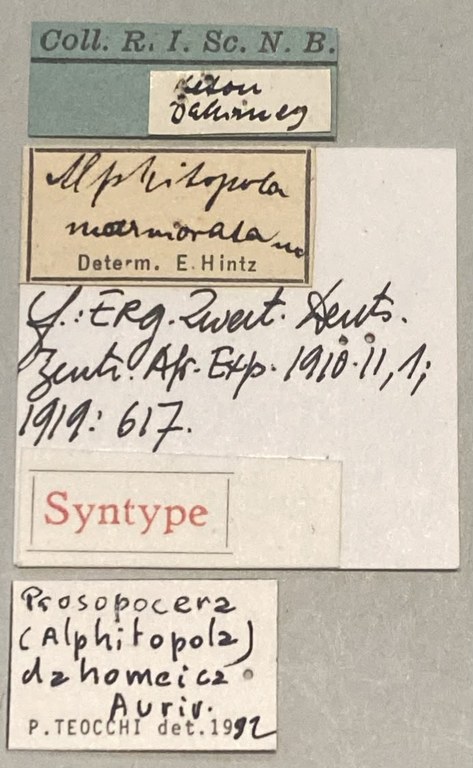 Coll. R. I. Sc. N. B.
Ketou
Dahomey
Alphitopola
marmorata
Determ. E. Hintz
cf.: Erg. Zweit. Deuts.
Zentr. Afr. Exp. 1910-11, 1;
1919: 617.
Syntype
Prosopocera
(Alphitopola)
dahomeica
Auriv.
P. TEOCCHI det. 1992